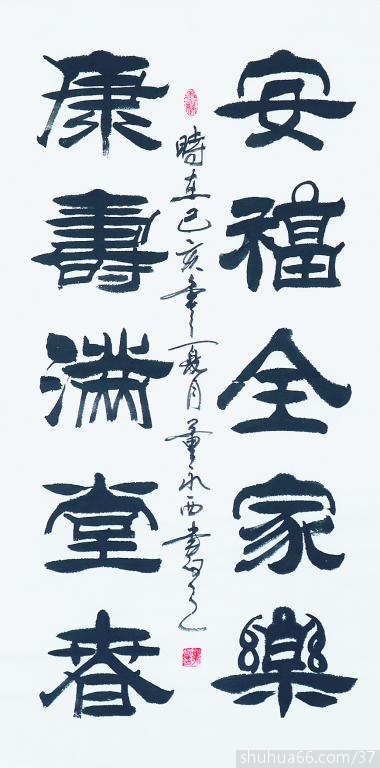 安福全家樂
康壽滿堂春
時在己亥年夏月董永西書
shuhua66.com/37